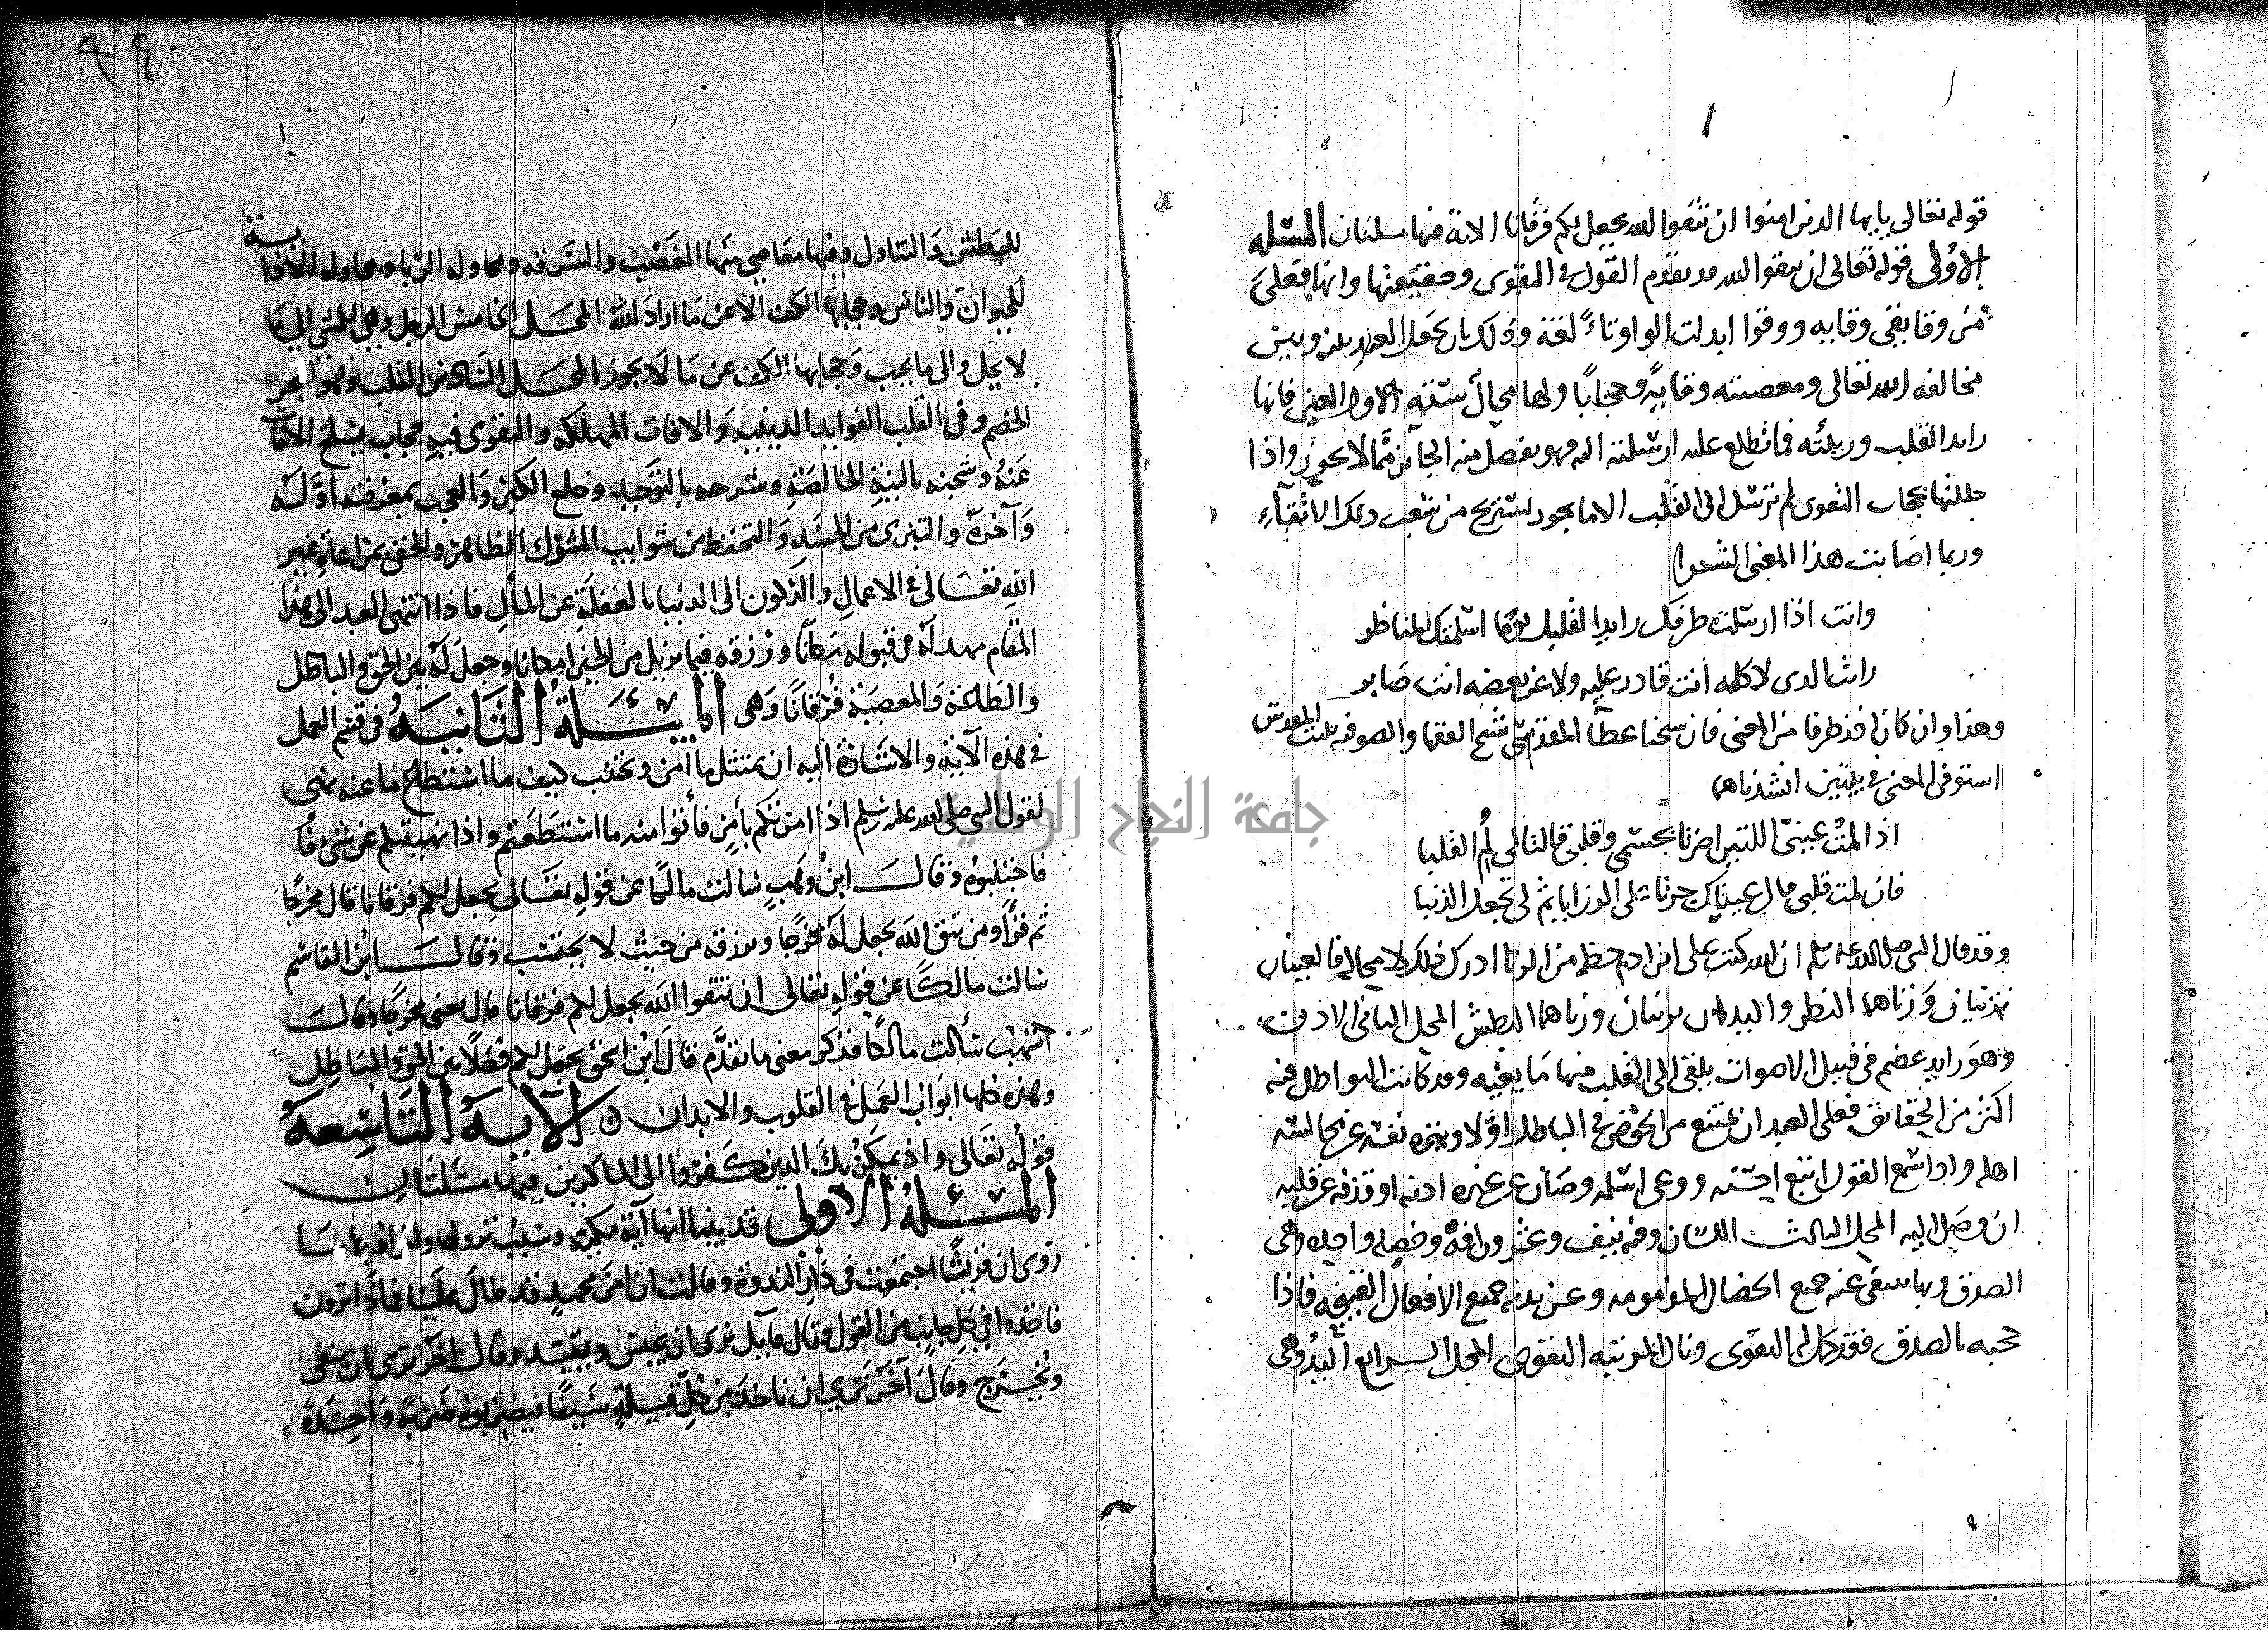 قوله تعالى يايها الذين امنوا ان تتقوا الله يجعل لكم فرقانا الاية فيها مسلتان المسئله
الاولى قوله تعالى ان تتقوا الله قد تقدم القول في التقوى وحقيقتها وانها فعلى
من وقا يقي وقايه ووقوا ابدلت الواو تاء لغة وذلك بان يجعل العبد بينه وبين
مخالفه الله تعالى ومعصيته وقاية وحجابا ولها محال سته الاول العين فانها
رايد القلب وربئته فما تطلع عليه ارسلته اليه فهو يفصل منه الجائز مما لا يجوز واذا
جللتها بحجاب التقوى لم ترسل الى القلب الا ما يجوز لستريح من شعب ذلك الاتقاء
وربما اصابت هذا المعنى الشعرا
وانت اذا ارسلت طرفك رايدا لقلبك يوما اسلمتك المناظر
رايت الذي لا كله انت قادر عليه ولا عن بعضه انت صابر
وهذا وان كان اخذ طرفا من المعنى فان شيخنا عطا المقدسي شيخ الفقها والصوفيه ببيت المقدس
استوفى المعنى في بيتين انشدناهما
اذا لمت عينيّ اللتين اضرتا بجسمي وقلبي قالتا لي لم القلبا
فان لمت قلبي قال عيناك جرتا علي الرزايا ثم لي تجعل الذنبا
وقد قال النبي صلى الله عليه وسلم ان الله كتب على ابن ادم حظه من الزنا ادرك ذلك لا محاله فالعينان
تزنيان وزناهما النظر واليدان تزنيان وزناهما البطش المحل الثاني الاذن
وهو رايد عظيم في قبيل الاصوات يلقى الى القلب منها ما يعيه وقد كانت البواطل فيه
اكثر من الحقائق فعلى العبد ان يمتنع من الخوض في الباطل اولا وينزه نفسه عن مجالسه
اهله واذا سمع القول اتبع احسنه ووعى اسلمه وصان عن غيره اذنه او قذفه عن قلبه
ان وصل اليه المحل الثالث اللسان وفيه نيف وعشرون افة وخصله واحده وهي
الصدق وبها ينتفي عنه جميع الخصال المذمومه وعن بدنه جميع الافعال القبيحه فاذا
حجبه بالصدق فقد كمل له التقوى ونال المرتبه التقوى المحل الرابع اليد وهي
٩٤
للبطش والتناول وفيها معاصي منها الغصب والسرقه ومحاوله الزنا ومحاوله الاذاية
للحيوان والناس وحجابها الكف الا عن ما اراد الله المحل الخامس الرجل وهي للمشي الي ما
لا يحل والى ما يجب وحجابها الكف عن ما لا يجوز المحل السادس القلب وهو البحر
الخضم وفي القلب الفوايد الدينيه والافات المهلكه والتقوى فيه حجاب يسلخ الافات
عنه وشحنه بالنية الخالصة وشرحه بالتوحيد وخلع الكبر والعجب بمعرفته اوله
وآخره والتبري من الحسد والتحفظ من شوايب الشرك الظاهر والخفي بمراعاة غير
الله تعالى في الاعمال والركون الى الدنيا بالغفلة عن المآل فاذا انتهى العبد الى هذا
المقام مهد له في قبوله مكانا ورزقه فيما يزيل من الخير امكانا وجعل له بين الحق والباطل
والطاعة والمعصية فرقانا وهي المسئلة الثانيه في قسم العمل
في هذه الآية والاشارة اليه ان يمتثل ما امر ويجتنب كيف ما استطاع ما عنه نهي
لقول النبي صلى الله عليه وسلم اذا امرتكم بأمر فأتوا منه ما استطعتم واذا نهيتكم عن شيء فا
فاجتنبوه وقال ابن وهب سالت مالكا عن قوله تعالى يجعل لكم فرقانا قال مخرجا
ثم قرأ ومن يتق الله يجعل له مخرجا ويرزقه من حيث لا يحتسب وقال ابن القاسم
سالت مالكا عن قوله تعالى ان تتقوا الله يجعل لكم فرقانا قال يعني مخرجا وقال
اشهب سألت مالكا فذكر معنى ما تقدم قال ابن اسحق يجعل لكم فصلا بين الحق والباطل
وهذه كلها ابواب العمل في القلوب والابدان ن الآية التاسعة
قوله تعالى واذ يمكر بك الذين كفروا الى الماكرين فيها مسئلتان
المسئلة الاولى قد بينا انها آية مكية وسبب نزولها والمراد بها ما
روى ان قريشا اجتمعت في دار الندوة وقالت ان امر محمد قد طال علينا فماذا ترون
فاخذوا في كل جانب من القول فقال قايل نرى ان يحبس ويقيد وقال اخر نرى ان ينفى
ويخرج وقال آخر نرى ان ناخذ من كل قبيلة سيفا فيضربوه ضربة واحدة
جامعة النجاح الوطنية